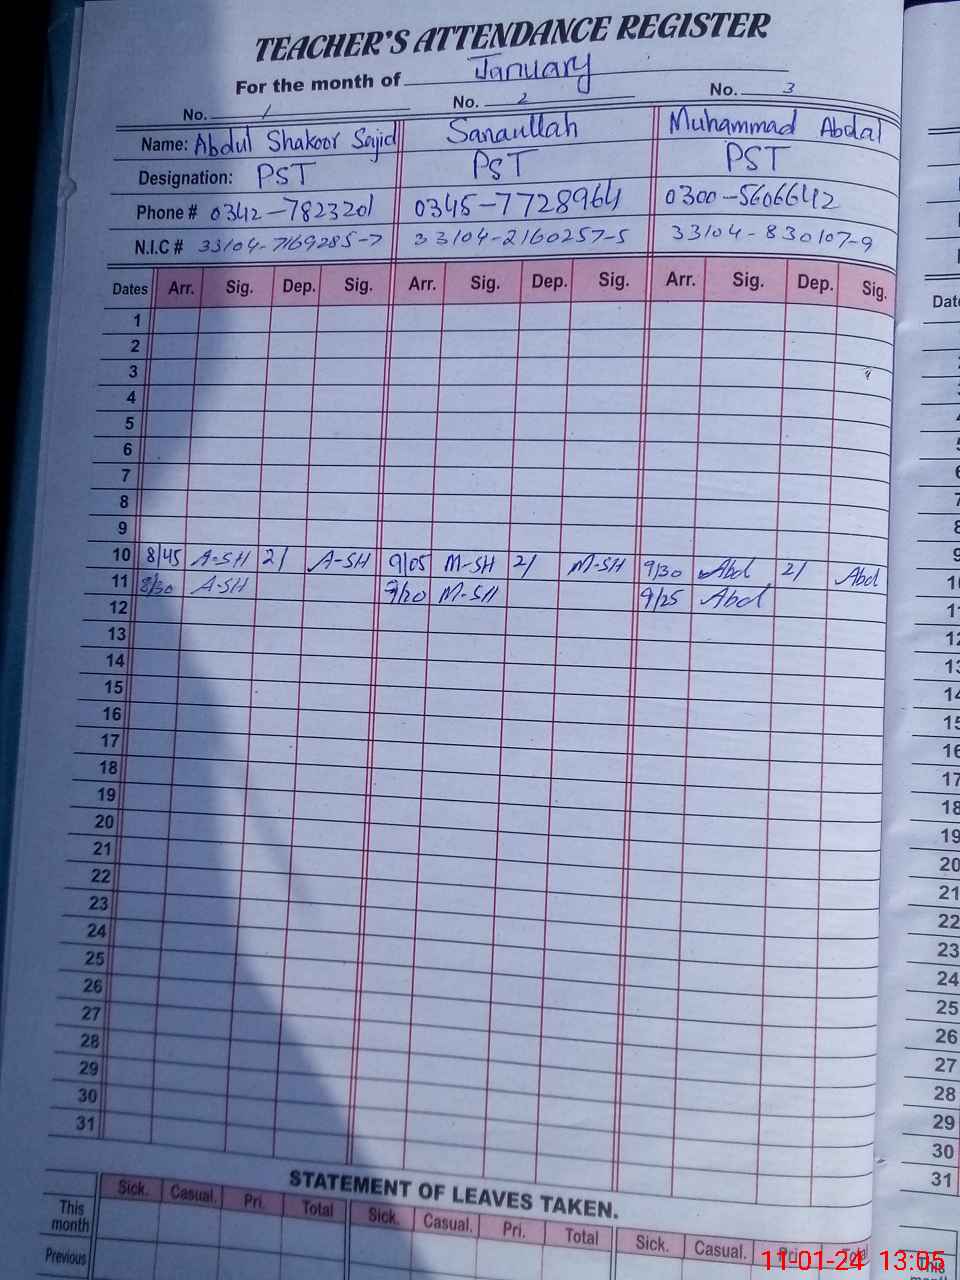 TEACHER'S ATTENDANCE REGISTER
For the month of January
No. 1 No. 2 No. 3
Name: Abdul Shakoor Sajid Sanaullah Muhammad Abdal
Designation: PST PST PST
Phone # 0342-7823201 0345-7728964 0300-5606642
N.I.C # 33104-7169285-7 33104-2160257-5 33104-830107-9
Dates Arr. Sig. Dep. Sig. Arr. Sig. Dep. Sig. Arr. Sig. Dep. Sig.
1
2
3
4
5
6
7
8
9
10 8/45 A-SH 2/ A-SH 9/05 M-SH 2/ M-SH 9/30 Abd 2/ Abd
11 8/30 A-SH 9/20 M-SH 9/25 Abd
12
13
14
15
16
17
18
19
20
21
22
23
24
25
26
27
28
29
30
31
STATEMENT OF LEAVES TAKEN.
Sick. Casual. Pri. Total Sick. Casual. Pri. Total Sick. Casual. Pri. Total
This month
Previous
11-01-24 13:05